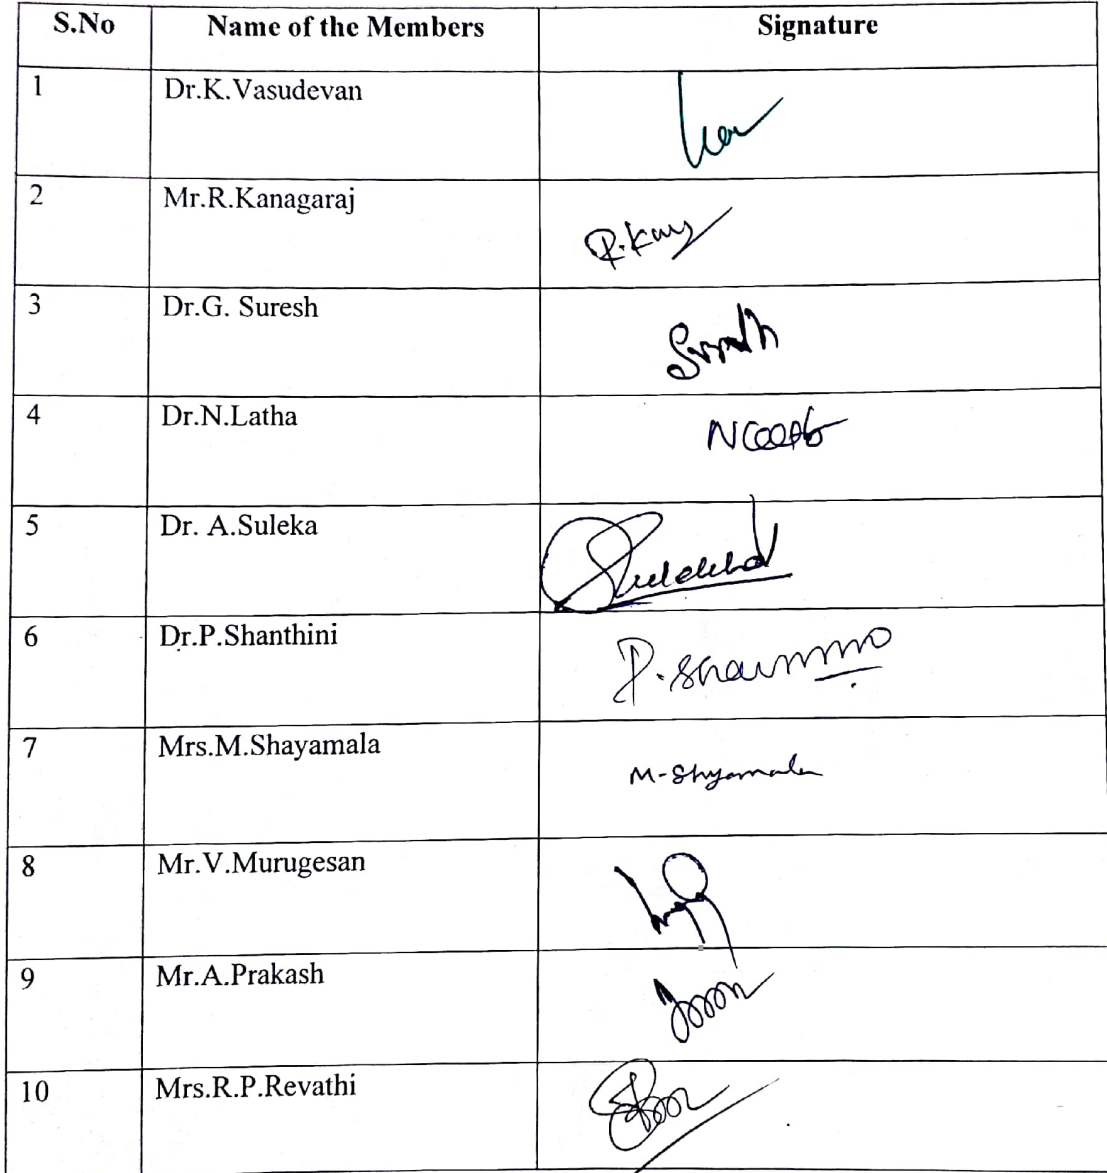 S.No Name of the Members Signature
1 Dr.K.Vasudevan
2 Mr.R.Kanagaraj R.Kanj
3 Dr.G. Suresh
4 Dr.N.Latha
5 Dr. A.Suleka
6 Dr.P.Shanthini
7 Mrs.M.Shayamala M-Shyamala
8 Mr.V.Murugesan
9 Mr.A.Prakash
10 Mrs.R.P.Revathi